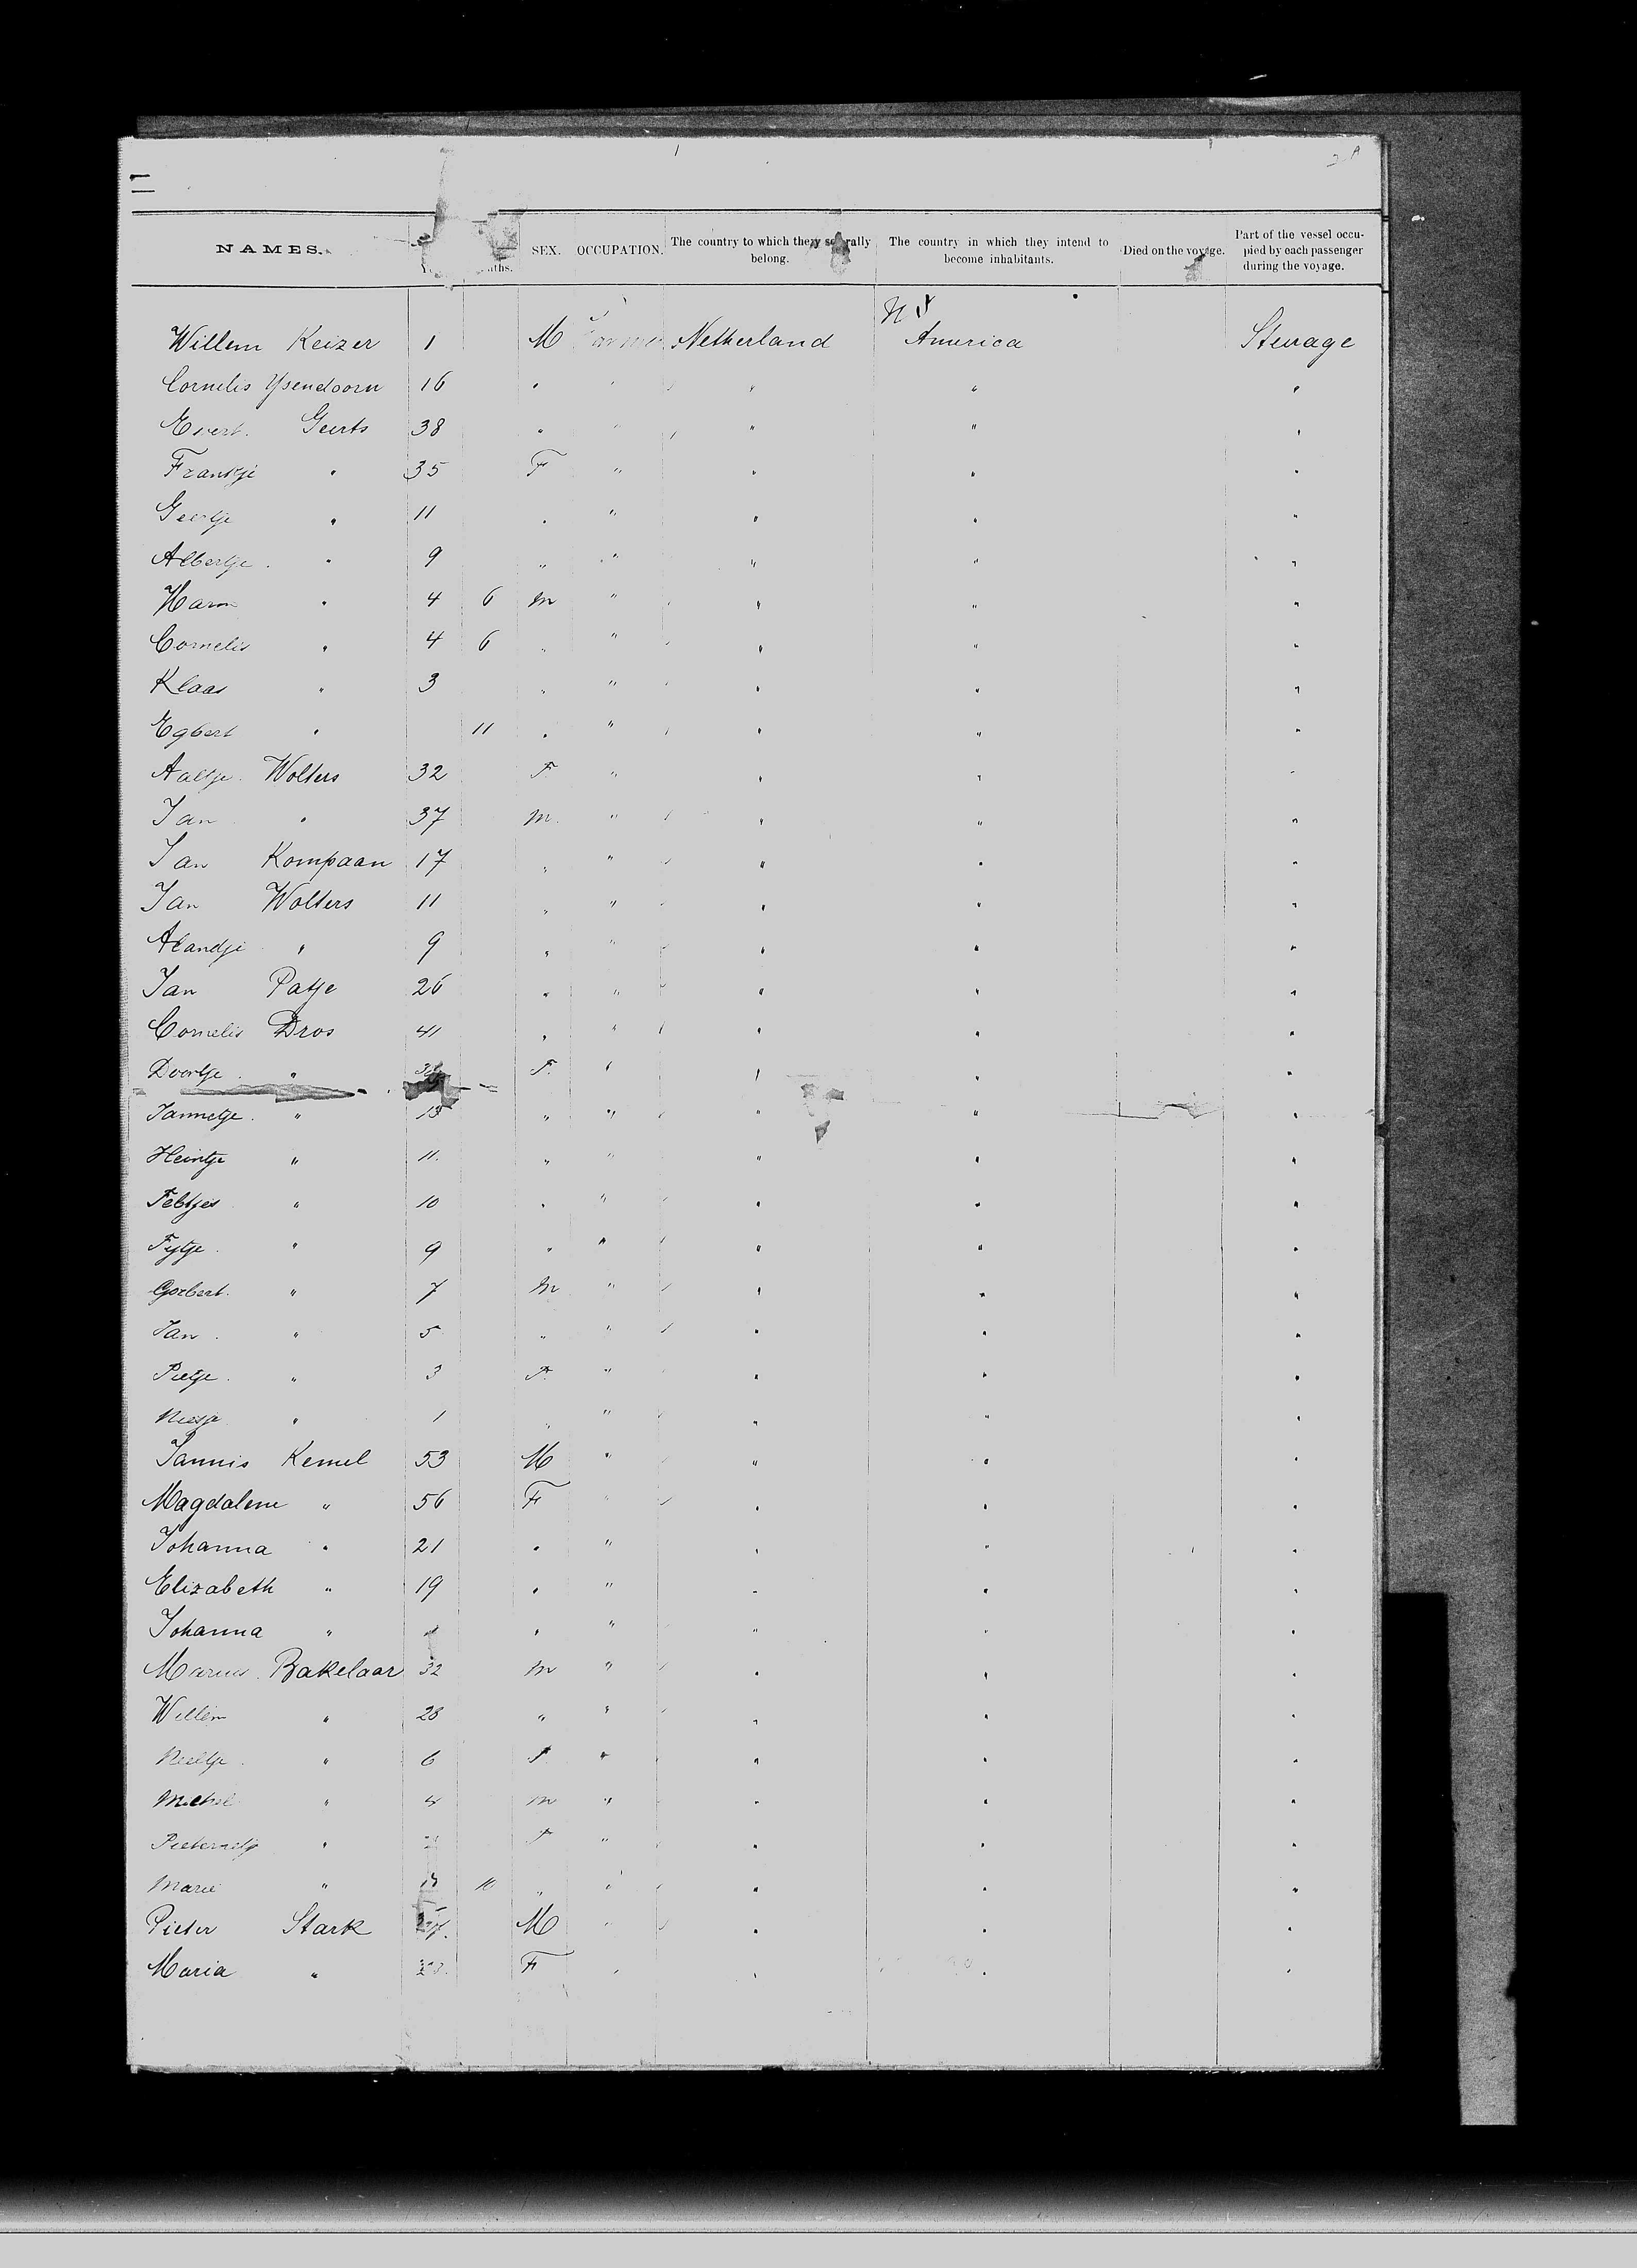 NAMES. SEX. OCCUPATION. The country to which they severally belong. The country in which they intend to become inhabitants. Died on the voyage. Part of the vessel occupied by each passenger during the voyage.
Willem Keizer 1 M Netherland America Steerage
Cornelis Ysendoorn 16 " " " " "
Evert Geerts 38 " " " " "
Frankje " 35 F " " " "
Geertje " 11 " " " " "
Albertje " 9 " " " " "
Harm " 4 6 M " " " "
Cornelis " 4 6 " " " " "
Klaas " 3 " " " " "
Egbert " 11 " " " " "
Aaltje Wolters 32 F " " " "
Jan " 37 M " " " "
Jan Kompaan 17 " " " " "
Jan Wolters 11 " " " " "
" 9 " " " " "
Jan Patje 26 " " " " "
Cornelis Dros 41 " " " " "
" F " " " "
Jannetje " 13 " " " " "
Heintje " 11 " " " " "
" 10 " " " " "
Fytje " 9 " " " " "
Gorbert " 7 M " " " "
Jan " 5 " " " " "
Pietje " 3 F " " " "
" 1 " " " " "
Jannis Kemel 53 M " " " "
Magdalene " 56 F " " " "
Johanna " 21 " " " " "
Elizabeth " 19 " " " " "
Johanna " " " " " "
Marius Bakelaar 32 M " " " "
Willem " 28 " " " " "
Neeltje " 6 F " " " "
Michel " 4 M " " " "
" F " " " "
Marie " " " " " "
Pieter Stark M " " " "
Maria " F " " " "